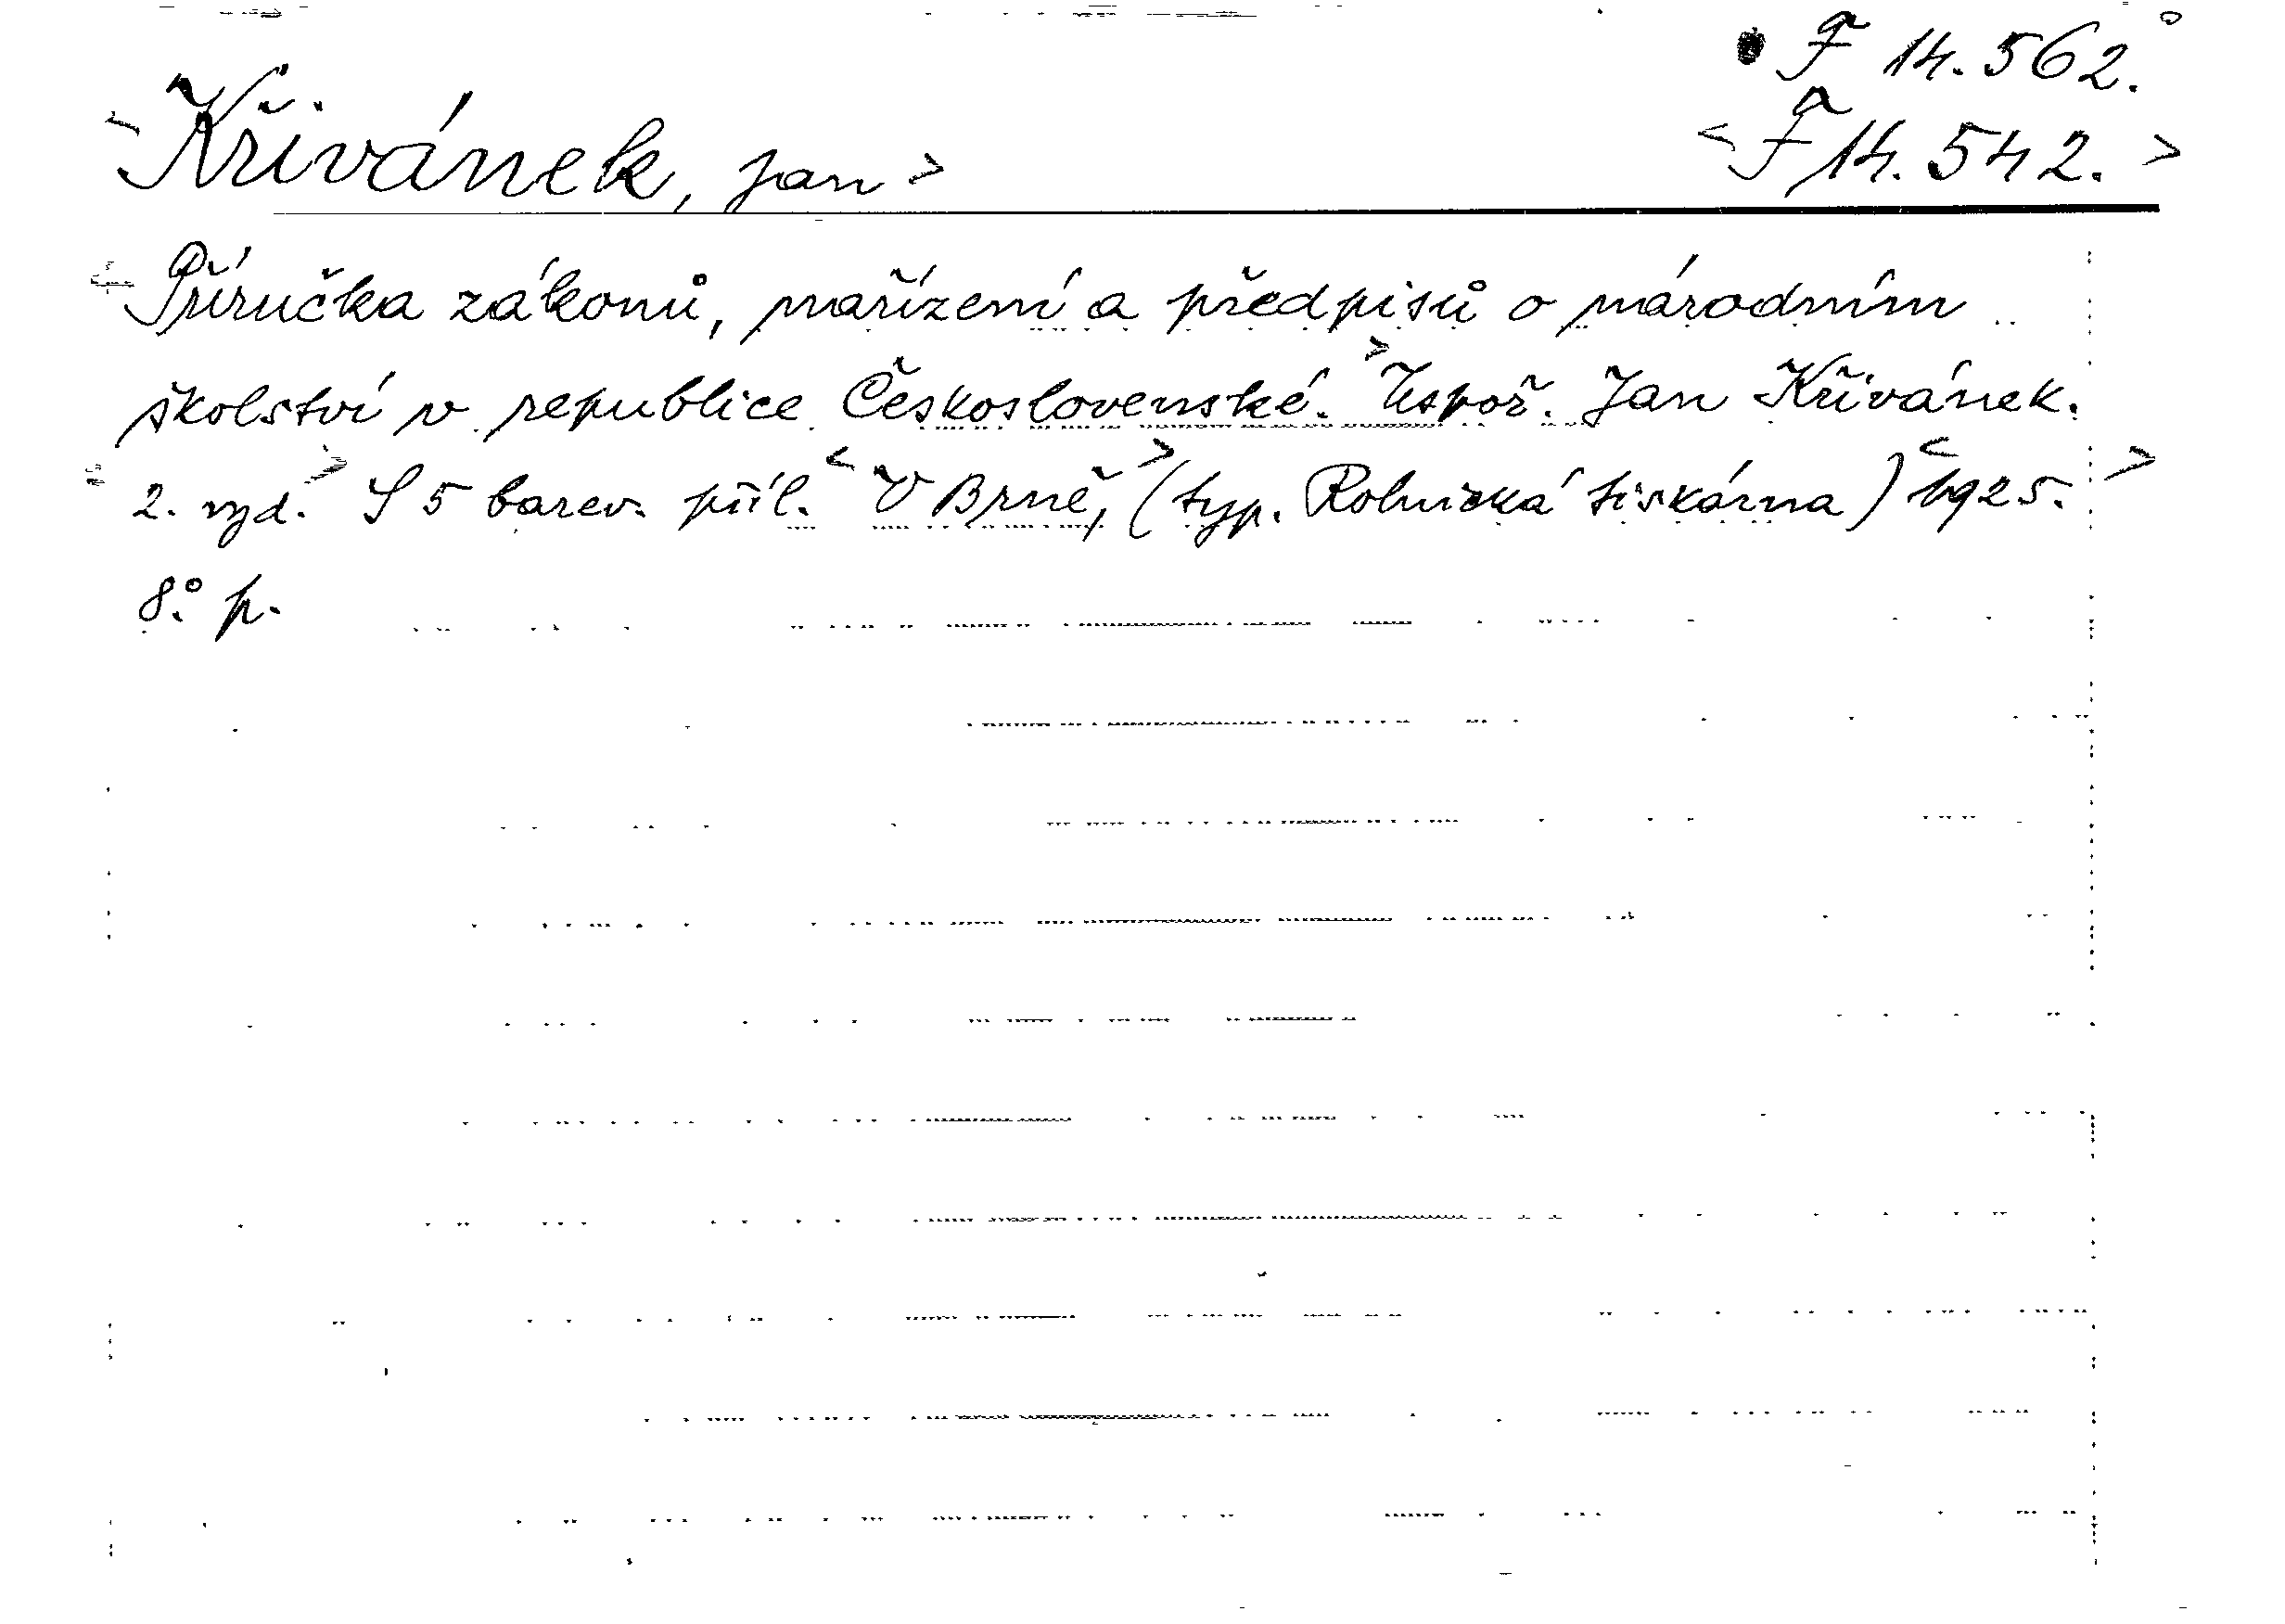 F 14.562.
<Křivánek, Jan>
<F 14.542.>
Příručka zákonů, nařízení a předpisů o národním
školství v republice Československé.> Uspoř. Jan Křivánek.
2. vyd.> S 5 barev. příl. <V Brně,> (typ. Rolnická tiskárna) <1925.>
8.° p.